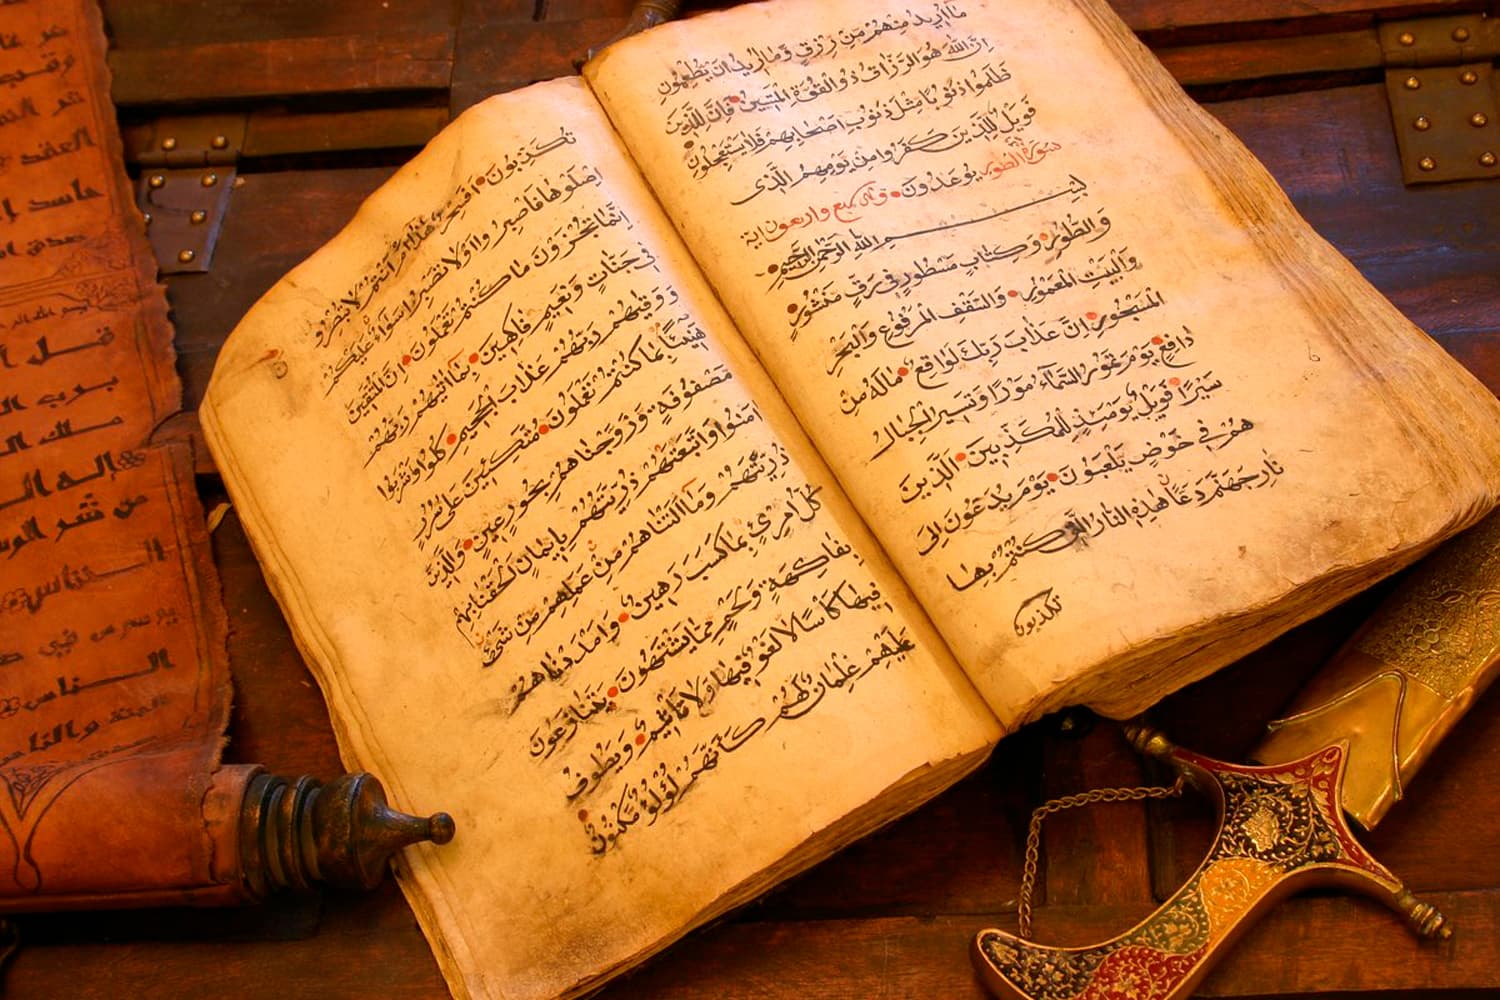 ما اريد منهم من رزق وما اريد ان يطعمون
ان الله هو الرزاق ذو القوة المتين فان للذين
ظلموا ذنوبا مثل ذنوب اصحابهم فلا يستعجلون
فويل للذين كفروا من يومهم الذى
سورة الطور يوعدون وهى سبع واربعون اية
بسم الله الرحمن الرحيم
والطور وكتاب مسطور فى رق منشور
والبيت المعمور والسقف المرفوع والبحر
المسجور ان عذاب ربك لواقع ماله من
دافع يوم تمور السماء مورا وتسير الجبال
سيرا فويل يومئذ للمكذبين الذين
هم فى خوض يلعبون يوم يدعون الى
نار جهنم دعا هذه النار التى كنتم بها
تكذبون
تكذبون افسحر هذا ام انتم لا تبصرون
اصلوها فاصبروا اولا تصبروا سواء عليكم
انما تجزون ما كنتم تعملون ان المتقين
فى جنات ونعيم فاكهين بما اتيهم ربهم
ووقيهم ربهم عذاب الجحيم كلوا واشربوا
هنيئا بما كنتم تعملون متكئين على سرر
مصفوفة وزوجناهم بحور عين والذين
امنوا واتبعتهم ذريتهم بايمان الحقنا بهم
ذريتهم وما التناهم من عملهم من شئ
كل امرئ بما كسب رهين وامددناهم
بفاكهة ولحم مما يشتهون يتنازعون
فيها كأسا لا لغو فيها ولا تأثيم ويطوف
عليهم غلمان لهم كانهم لؤلؤ مكنون
العقد
حاسد إ
قل أ
برب ال
ملك ال
إله ال
من شر الوس
الناس
يوسوس في
الناس
الجنة والناس